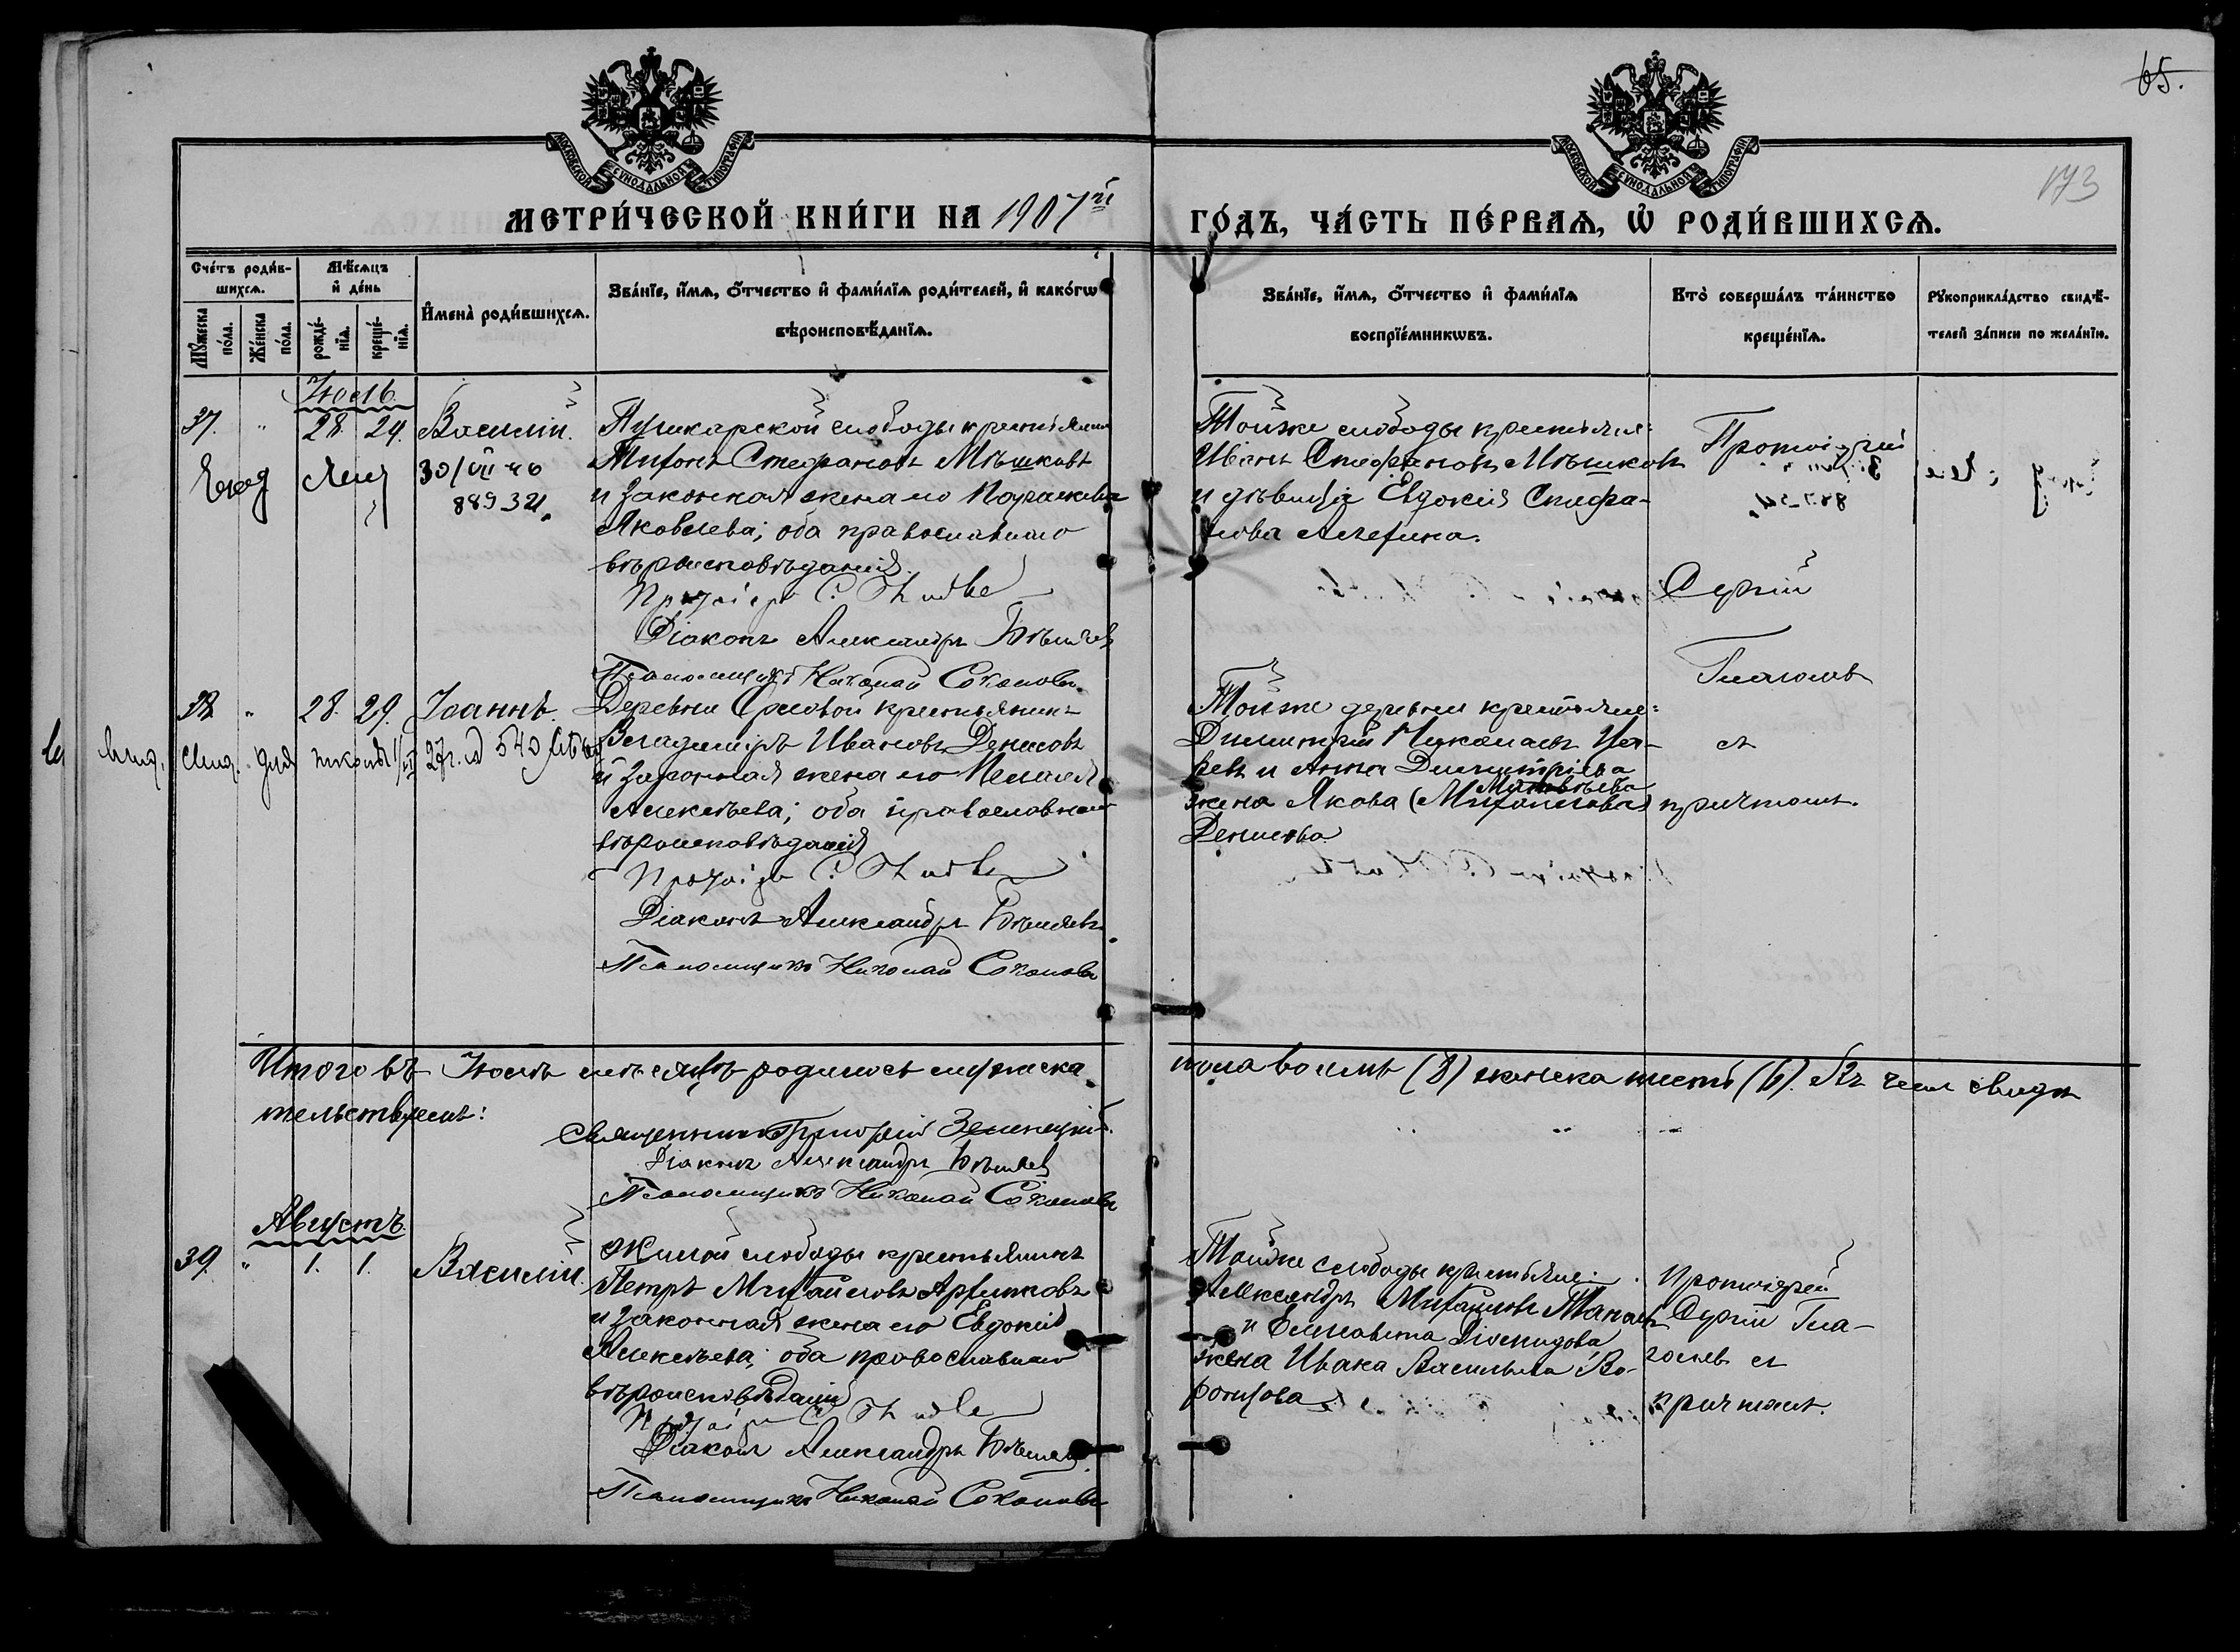 65.
173
МОСКОВСКОЙ СѴНОДАЛЬНОЙ ТИПОГРАФІИ
МОСКОВСКОЙ СѴНОДАЛЬНОЙ ТИПОГРАФІИ
МЕТРИ́ЧЕСКОЙ КНИ́ГИ НА 1907й
ГО́ДЪ, ЧА́СТЬ ПЕ́РВАѦ, Ѡ҆ РОДИ́ВШИХСѦ.
Сче́тъ роди́в-
шихсѧ.
Мꙋ́жеска
по́ла.
Же́нска
по́ла.
Мѣ́сѧцъ
и҆ де́нь
рожде́-
нїѧ.
креще́-
нїѧ.
И҆мена̀ роди́вшихсѧ.
Зва́нїе, и҆́мѧ, ѻ҆́тчество и҆ фами́лїѧ роди́телей, и҆ како́гѡ
вѣроисповѣ́данїѧ.
Зва́нїе, и҆́мѧ, ѻ҆́тчество и҆ фами́лїѧ
воспрїе́мникѡвъ.
Кто̀ соверша́лъ та́инство
креще́нїѧ.
Рꙋкоприкла́дство свидѣ́-
телей за́писи по жела́нїю.
Іюль.
37. " 28. 29. Василій.
30/VII 40
889321.
Пушкарской слободы крестьянинъ
Стефановъ Мѣшковъ
и законная жена его Параскева
Яковлева; оба православнаго
вѣроисповѣданія.
Протоіерей С.
Діаконъ Александръ
Псаломщикъ Николай Соколовъ.
Тойже слободы крестьяне:
Иванъ Стефановъ Мѣшковъ
и дѣвица Евдокія Стефа-
нова
Протоіерей
Сергій
Глаголевъ
съ
причтомъ.
38. " 28. 29. Іоаннъ.
Деревни крестьянинъ
Владиміръ Ивановъ Денисовъ
и законная жена его Пелагея
Алексѣева; оба православнаго
вѣроисповѣданія
Протоіерей С.
Діаконъ Александръ
Псаломщикъ Николай Соколовъ
Тойже деревни крестьяне:
Димитрій Николаевъ
и Анна Димитріева
жена Якова
Денисова
Итого въ Іюлѣ мѣсяцѣ родилось мужеска
пола восемь (8) женска шесть (6). Въ чемъ свидѣ
тельствуемъ:
Священникъ Григорій
Діаконъ Александръ
Псаломщикъ Николай Соколовъ
Августъ.
39. " 1. 1. Василій.
слободы крестьянинъ
Петръ Михайловъ
и законная жена его Евдокія
Алексѣева; оба православнаго
вѣроисповѣданія
Протоіерей С.
Діаконъ Александръ
Псаломщикъ Николай Соколовъ
Тойже слободы крестьяне:
Александръ Михайловъ
и Елисавета Діомидова
жена Ивана Васильева Во-
ронцова
Протоіерей
Сергій Гла-
голевъ съ
причтомъ.